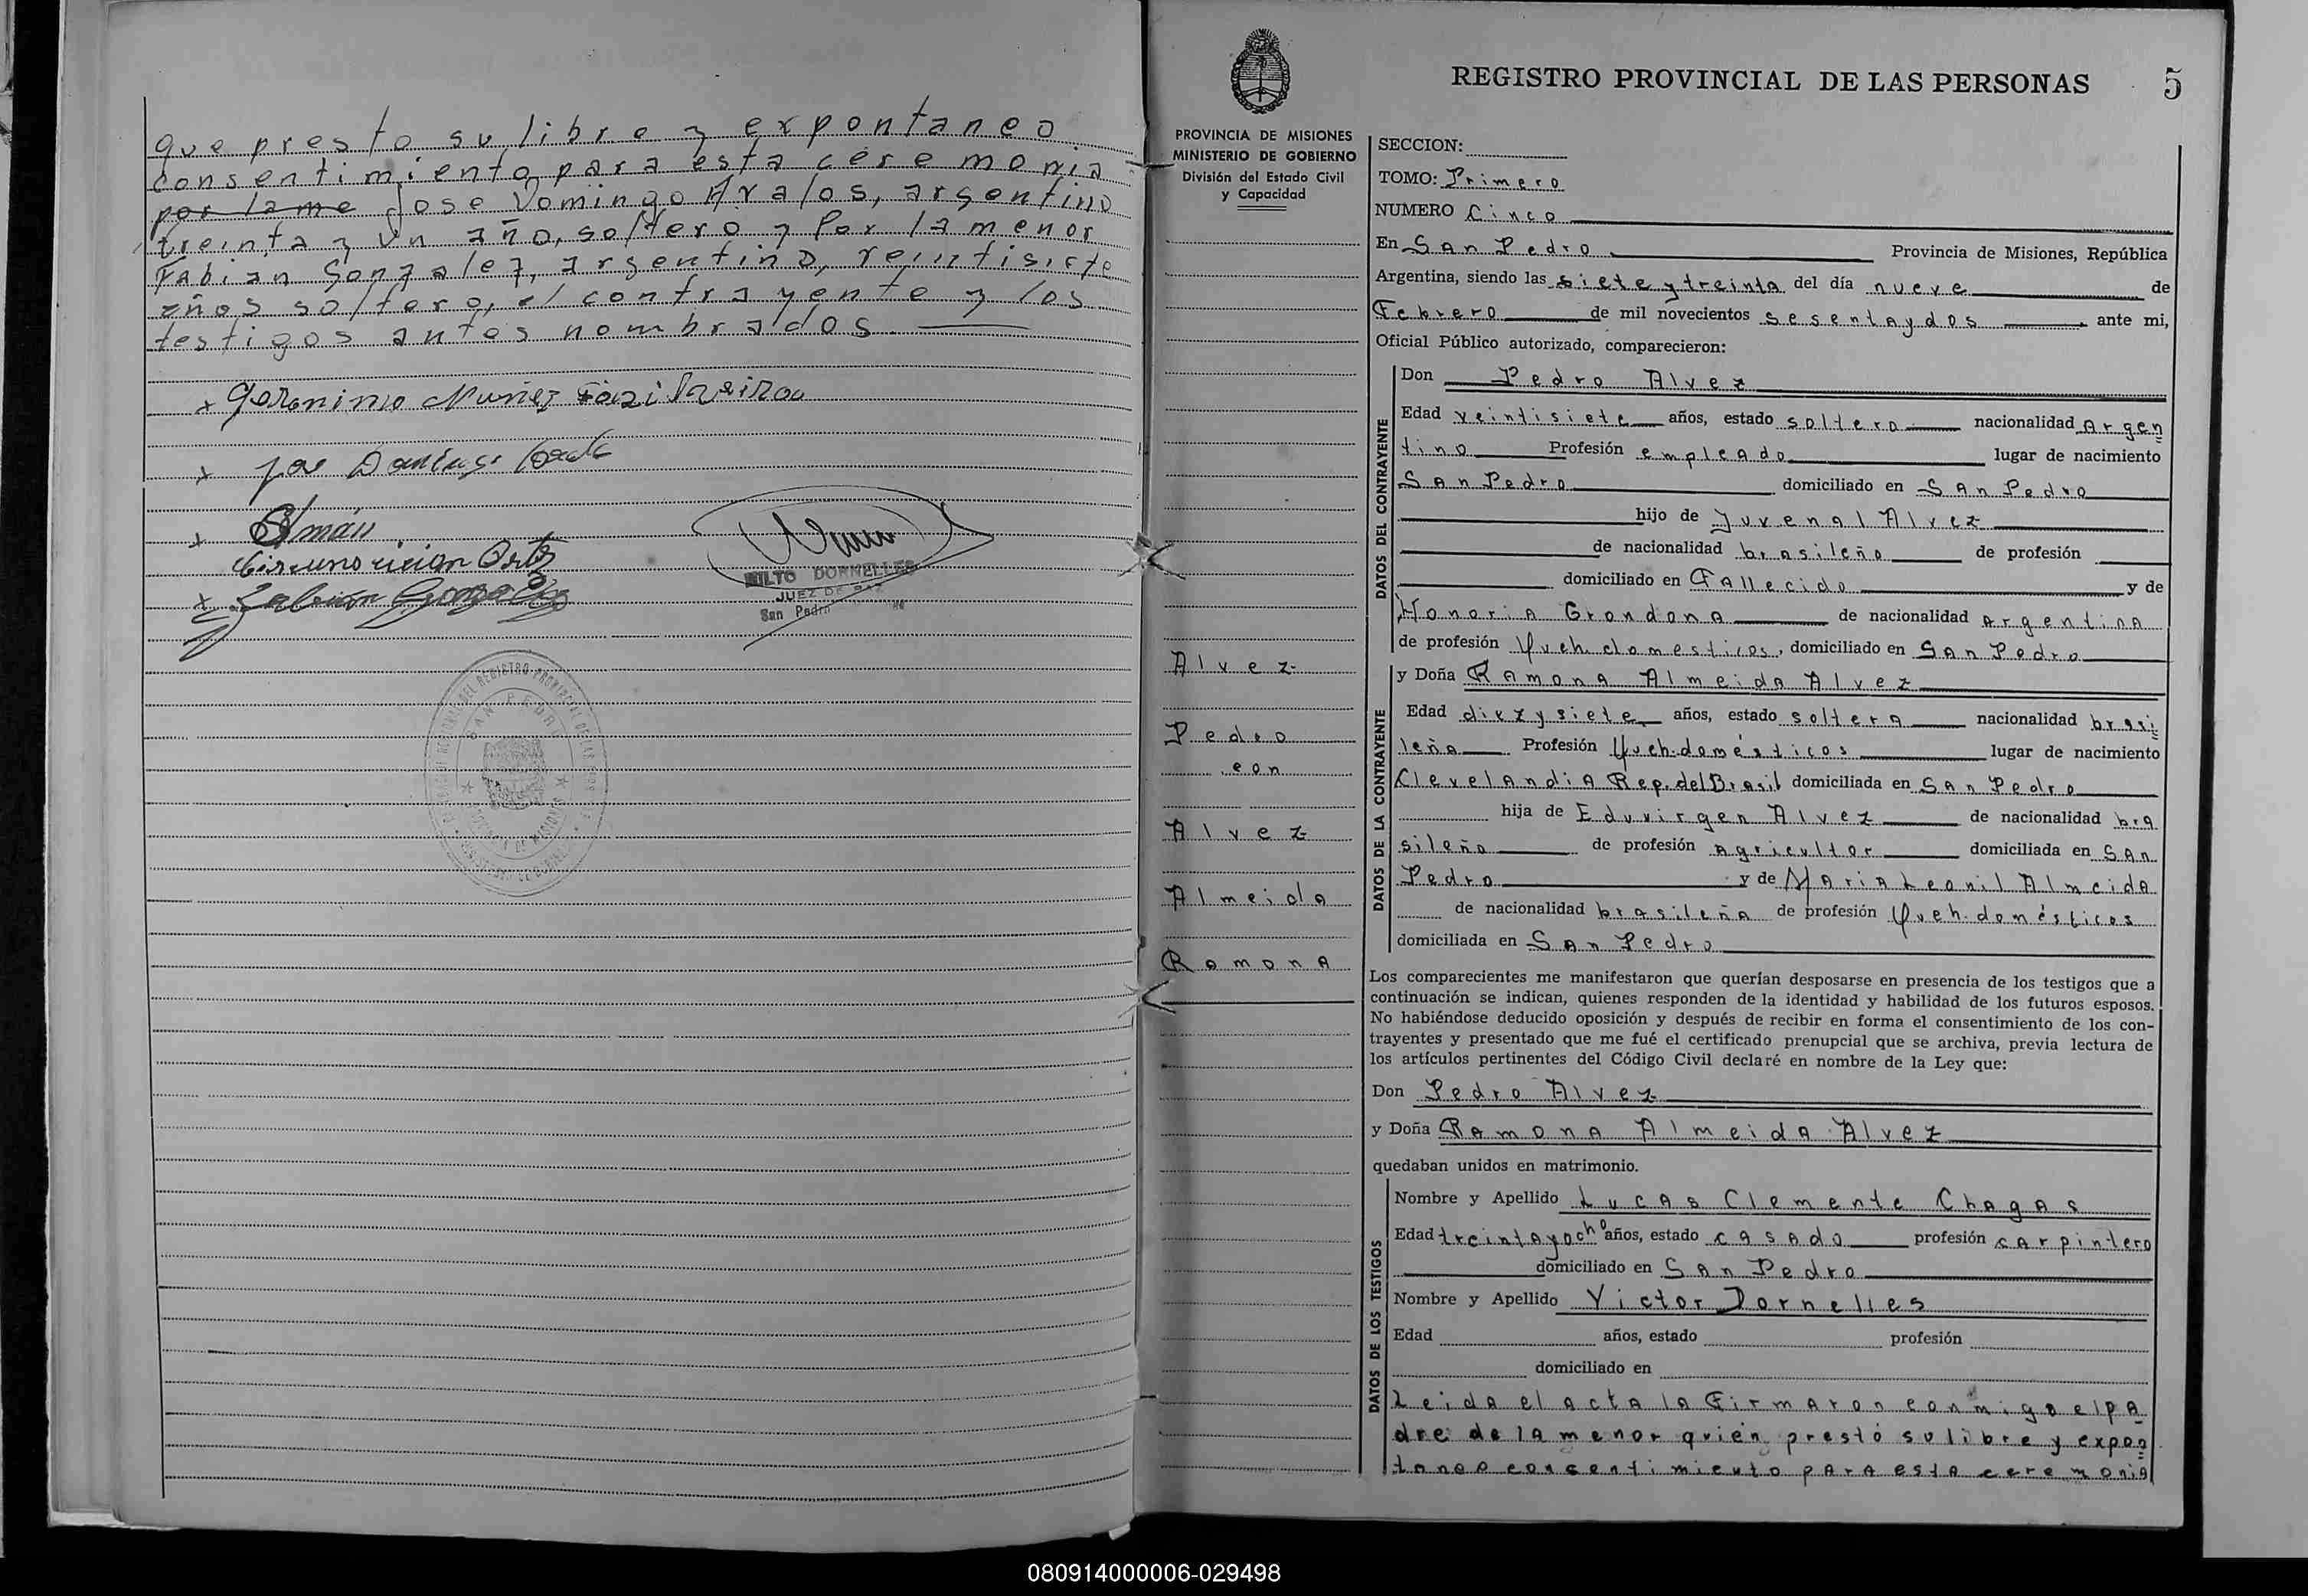 que presto su libre y expontaneo
consentimiento para esta ceremonia
por la me Jose Domingo Avalos, argentino
treinta y un año, soltero y por la menor
Fabian Gonzalez, argentino, veintisiete
años soltero, el contrayente y los
testigos antes nombrados.
x Geronimo Nuñez
x
x
Circuncicion Ortiz
x Fabian Gonzalez
MILTO DORNELLES
JUEZ DE PAZ
San Pedro
SAN PEDRO
PROVINCIA DE MISIONES
REGISTRO PROVINCIAL DE LAS PERSONAS 5
PROVINCIA DE MISIONES
MINISTERIO DE GOBIERNO
División del Estado Civil
y Capacidad
Alvez
Pedro
con
Alvez
Almeida
Ramona
SECCION:
TOMO: Primero
NUMERO Cinco
En San Pedro Provincia de Misiones, República
Argentina, siendo las siete y treinta del día nueve de
Febrero de mil novecientos sesenta y dos ante mi,
Oficial Público autorizado, comparecieron:
DATOS DEL CONTRAYENTE
Don Pedro Alvez
Edad veintisiete años, estado soltero nacionalidad Argen
tino Profesión empleado lugar de nacimiento
San Pedro domiciliado en San Pedro
hijo de Juvenal Alvez
de nacionalidad brasileño de profesión
domiciliado en Fallecido y de
Honoria Grondona de nacionalidad argentina
de profesión Queh. domesticos, domiciliado en San Pedro
DATOS DE LA CONTRAYENTE
y Doña Ramona Almeida Alvez
Edad diez y siete años, estado soltera nacionalidad brasi
leña Profesión Queh. domésticos lugar de nacimiento
Clevelandia Rep. del Brasil domiciliada en San Pedro
hija de Eduvirgen Alvez de nacionalidad bra
sileño de profesión agricultor domiciliada en San
Pedro y de Maria Leonil Almeida
de nacionalidad brasileña de profesión Queh. domésticos
domiciliada en San Pedro
Los comparecientes me manifestaron que querían desposarse en presencia de los testigos que a
continuación se indican, quienes responden de la identidad y habilidad de los futuros esposos.
No habiéndose deducido oposición y después de recibir en forma el consentimiento de los con-
trayentes y presentado que me fué el certificado prenupcial que se archiva, previa lectura de
los artículos pertinentes del Código Civil declaré en nombre de la Ley que:
Don Pedro Alvez
y Doña Ramona Almeida Alvez
quedaban unidos en matrimonio.
DATOS DE LOS TESTIGOS
Nombre y Apellido Lucas Clemente Chagas
Edad treinta y ocho años, estado casado profesión carpintero
domiciliado en San Pedro
Nombre y Apellido Victor Dornelles
Edad años, estado profesión
domiciliado en
Leida el acta la Firmaron conmigo el pa
dre de la menor quién prestó su libre y expon
taneo consentimiento para esta ceremonia
080914000006-029498